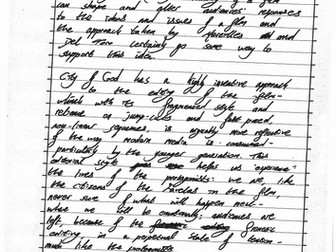 can shape and alter audiences' responses
to the ideas and issues of a film and
the approach taken by Meirelles and
Del Toro certainly go some way to
support this idea.
City of God has a highly inventive approach
to the editing of the film-
which with its fragmented style and
reliance on jump-cuts and fast paced,
non-linear sequences, is equally more reflective
of the way modern media is consumed-
particularly by the younger generation. This
editorial style helps us experience
the lives of the protagonists: we are like
the citizens of the favelas in the film,
never sure of what will happen next
what we will be confronted; audiences are
left because of the frenetic
editing, in a perpetual state of tension-
much like the protagonists